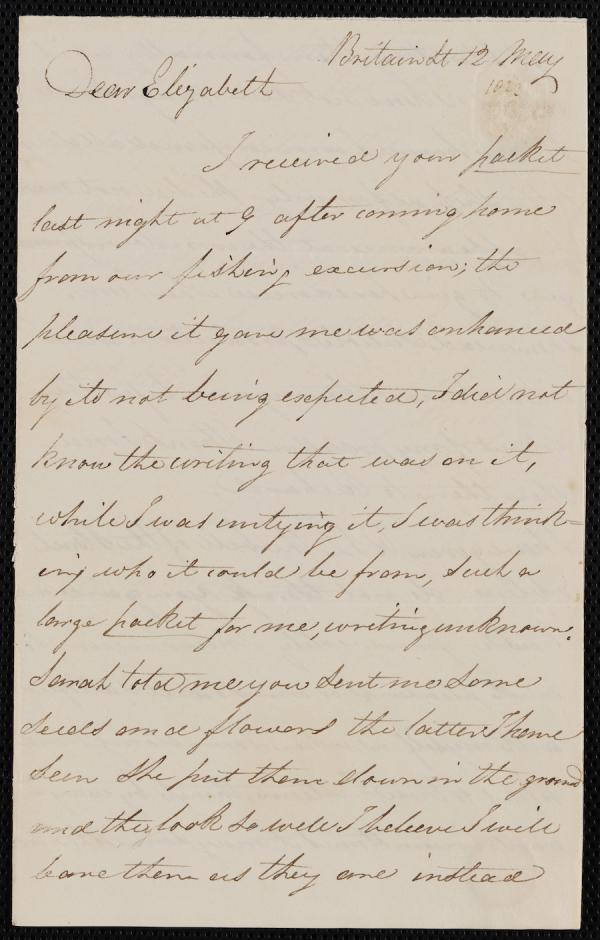 Britain St 12 May
Dear Elizabeth
I received your packet
last night at 9 after coming home
from our fishing excursion; the
pleasure it gave me was enhanced
by its not being expected, I did not
know the writing that was on it,
while I was untying it, I was think=
ing who it could be from, such a
large packet for me, writing unknown.
Sarah told me you sent me some
seeds and flowers the latter I have
seen she put them down in the ground
and they look so well I believe I will
leave them as they are instead